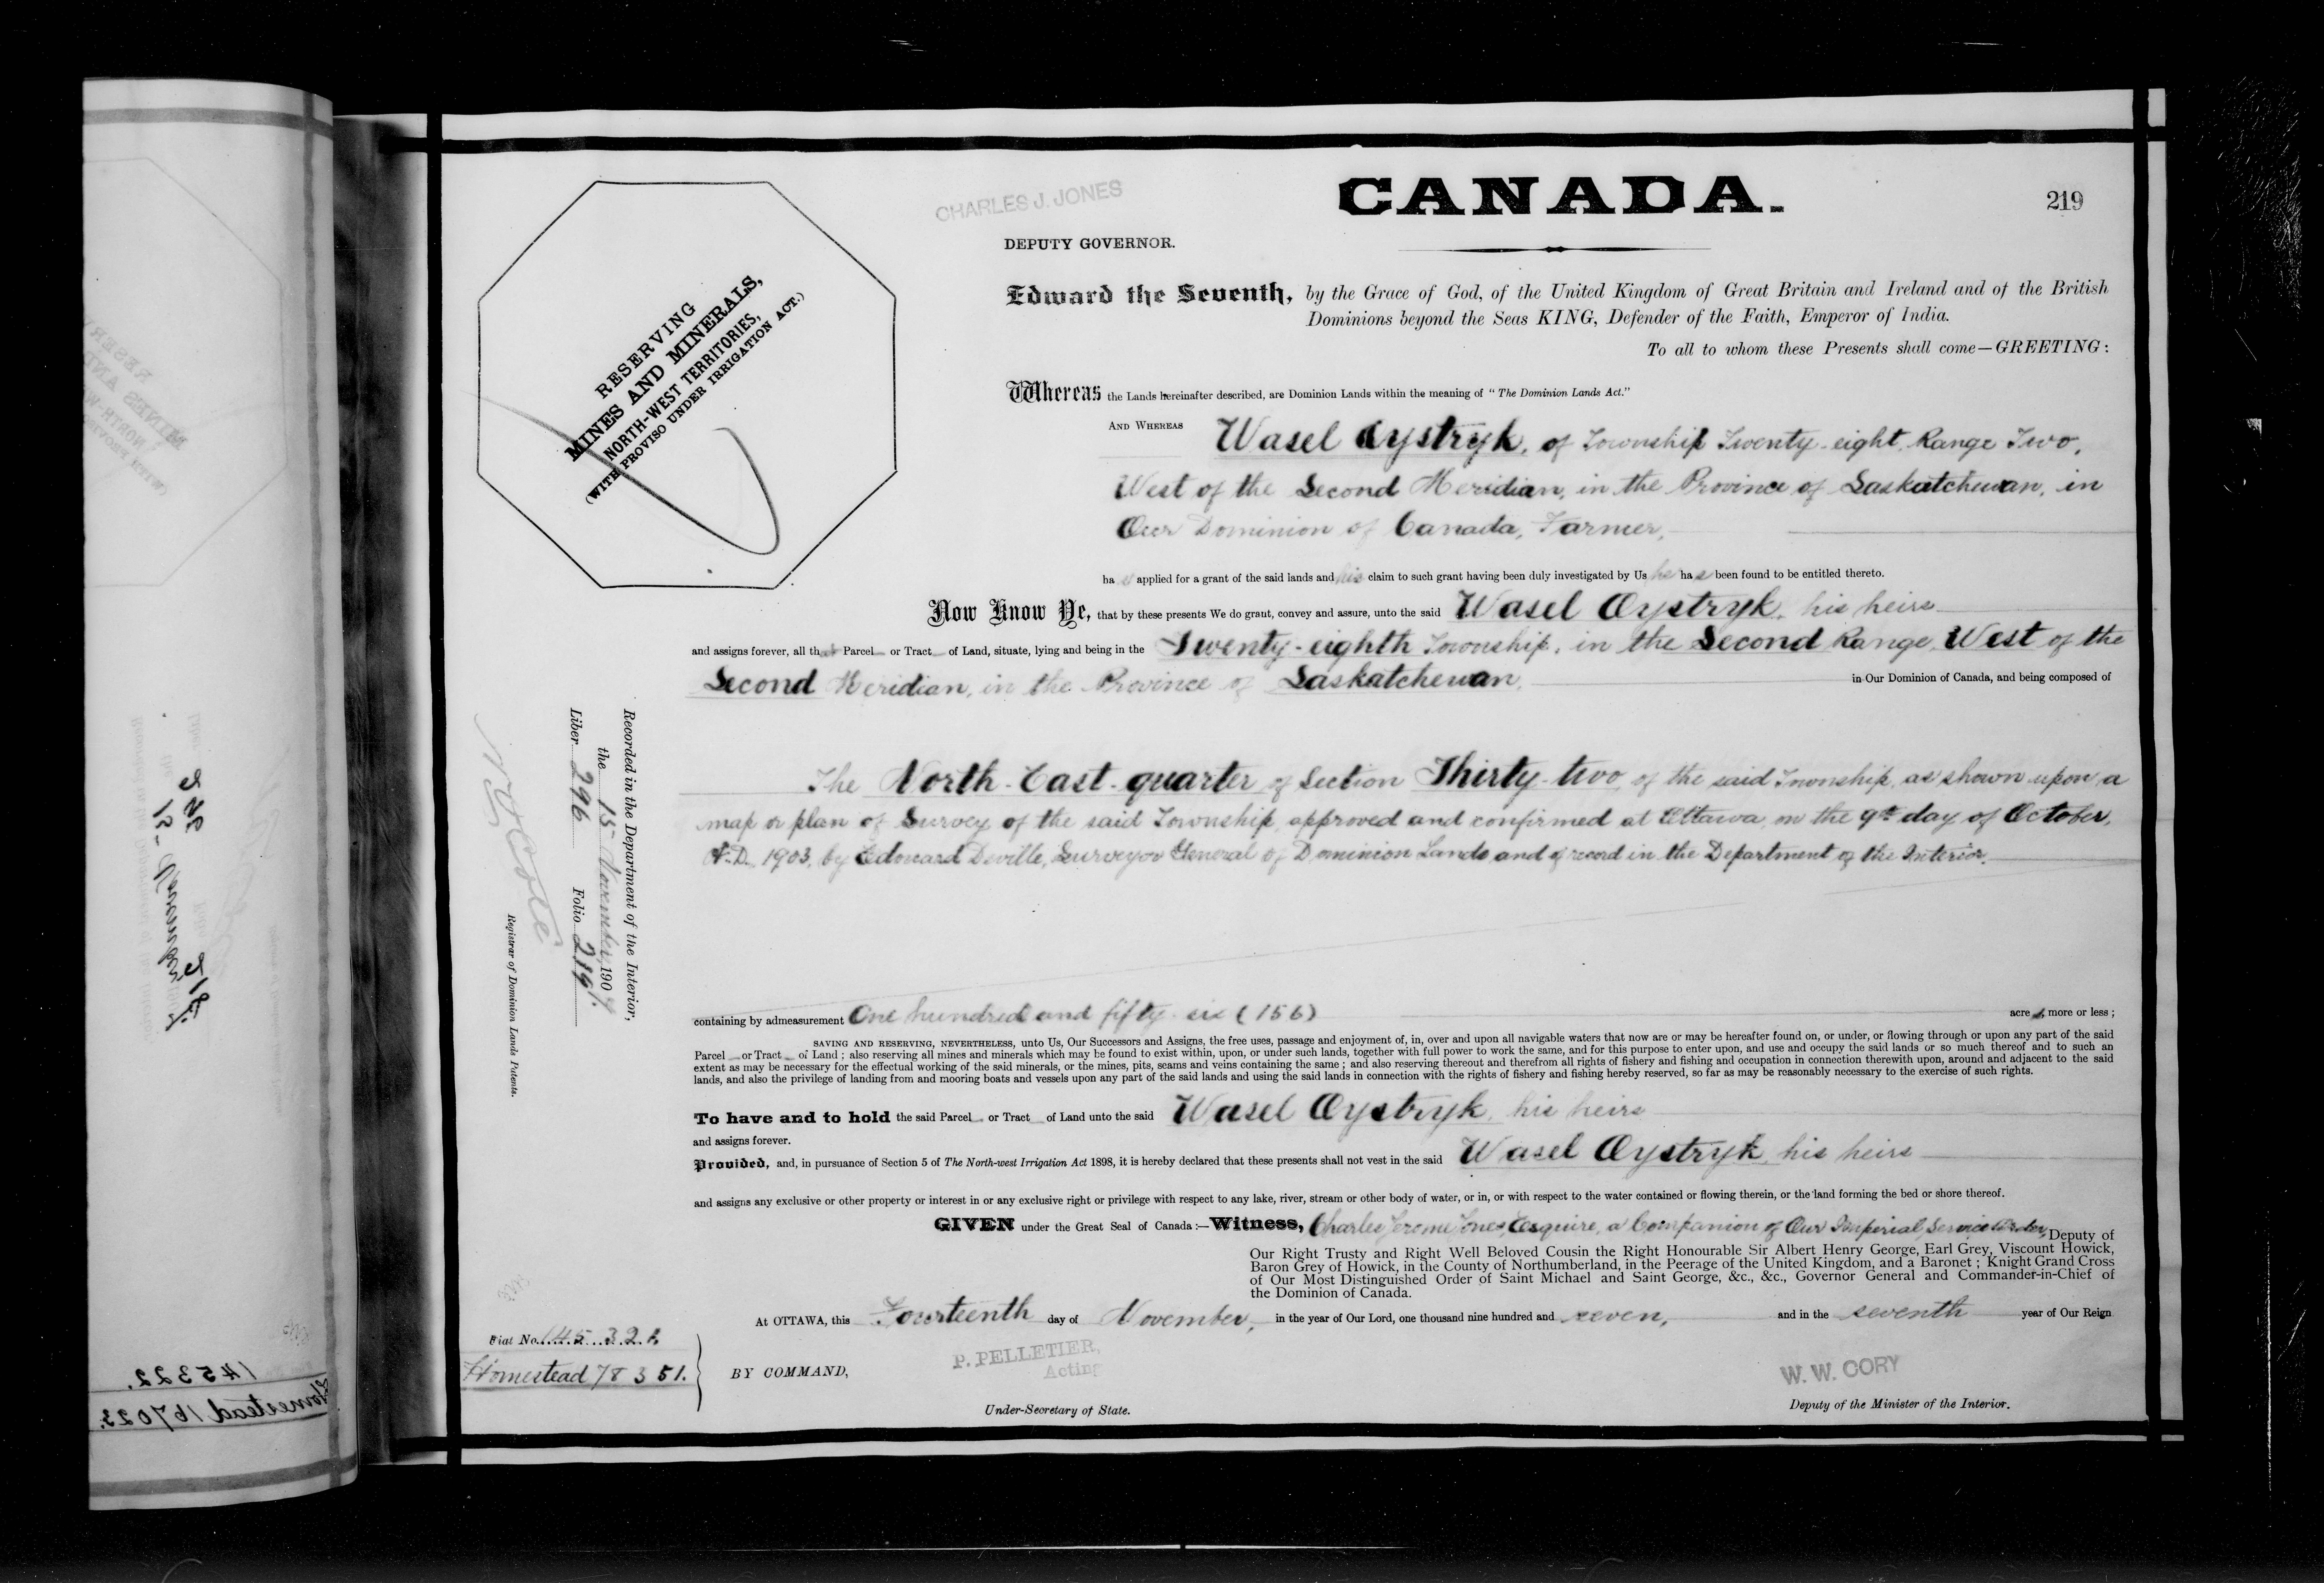 CHARLES J. JONES
CANADA.
219
DEPUTY GOVERNOR.
RESERVING
MINES AND MINERALS,
NORTH-WEST TERRITORIES,
(WITH PROVISO UNDER IRRIGATION ACT.)
Edward the Seventh, by the Grace of God, of the United Kingdom of Great Britain and Ireland and of the British
Dominions beyond the Seas KING, Defender of the Faith, Emperor of India.
To all to whom these Presents shall come—GREETING:
Whereas the Lands hereinafter described, are Dominion Lands within the meaning of "The Dominion Lands Act."
AND WHEREAS Wasel Oystryk, of Township Twenty-eight, Range Two,
West of the Second Meridian, in the Province of Saskatchewan, in
Our Dominion of Canada, Farmer,
has applied for a grant of the said lands and his claim to such grant having been duly investigated by Us he has been found to be entitled thereto.
Now Know Ye, that by these presents We do grant, convey and assure, unto the said Wasel Oystryk, his heirs
and assigns forever, all that Parcel or Tract of Land, situate, lying and being in the Twenty-eighth Township, in the Second Range, West of the
Second Meridian, in the Province of Saskatchewan, in Our Dominion of Canada, and being composed of
The North-East-quarter of Section Thirty-two, of the said Township, as shown upon a
map or plan of Survey of the said Township, approved and confirmed at Ottawa, on the 9th day of October,
A.D. 1903, by Edouard Deville, Surveyor General of Dominion Lands and of record in the Department of the Interior.
Recorded in the Department of the Interior,
the 15 November, 1907
Liber 296 Folio 219.
Registrar of Dominion Lands Patents.
containing by admeasurement One hundred and fifty-six (156) acres, more or less;
SAVING AND RESERVING, NEVERTHELESS, unto Us, Our Successors and Assigns, the free uses, passage and enjoyment of, in, over and upon all navigable waters that now are or may be hereafter found on, or under, or flowing through or upon any part of the said
Parcel or Tract of Land; also reserving all mines and minerals which may be found to exist within, upon, or under such lands, together with full power to work the same, and for this purpose to enter upon, and use and occupy the said lands or so much thereof and to such an
extent as may be necessary for the effectual working of the said minerals, or the mines, pits, seams and veins containing the same; and also reserving thereout and therefrom all rights of fishery and fishing and occupation in connection therewith upon, around and adjacent to the said
lands, and also the privilege of landing from and mooring boats and vessels upon any part of the said lands and using the said lands in connection with the rights of fishery and fishing hereby reserved, so far as may be reasonably necessary to the exercise of such rights.
To have and to hold the said Parcel or Tract of Land unto the said Wasel Oystryk, his heirs
and assigns forever.
Provided, and, in pursuance of Section 5 of The North-west Irrigation Act 1898, it is hereby declared that these presents shall not vest in the said Wasel Oystryk, his heirs
and assigns any exclusive or other property or interest in or any exclusive right or privilege with respect to any lake, river, stream or other body of water, or in, or with respect to the water contained or flowing therein, or the land forming the bed or shore thereof.
GIVEN under the Great Seal of Canada:—Witness, Charles Jerome Jones, Esquire, a Companion of Our Imperial Service Order, Deputy of
Our Right Trusty and Right Well Beloved Cousin the Right Honourable Sir Albert Henry George, Earl Grey, Viscount Howick,
Baron Grey of Howick, in the County of Northumberland, in the Peerage of the United Kingdom, and a Baronet; Knight Grand Cross
of Our Most Distinguished Order of Saint Michael and Saint George, &c., &c., Governor General and Commander-in-Chief of
the Dominion of Canada.
At OTTAWA, this Fourteenth day of November, in the year of Our Lord, one thousand nine hundred and seven, and in the seventh year of Our Reign
Fiat No. 145321.
Homestead 78351.
BY COMMAND,
P. PELLETIER,
Acting
Under-Secretary of State.
W. W. CORY
Deputy of the Minister of the Interior.
145322.
Homestead 167023.